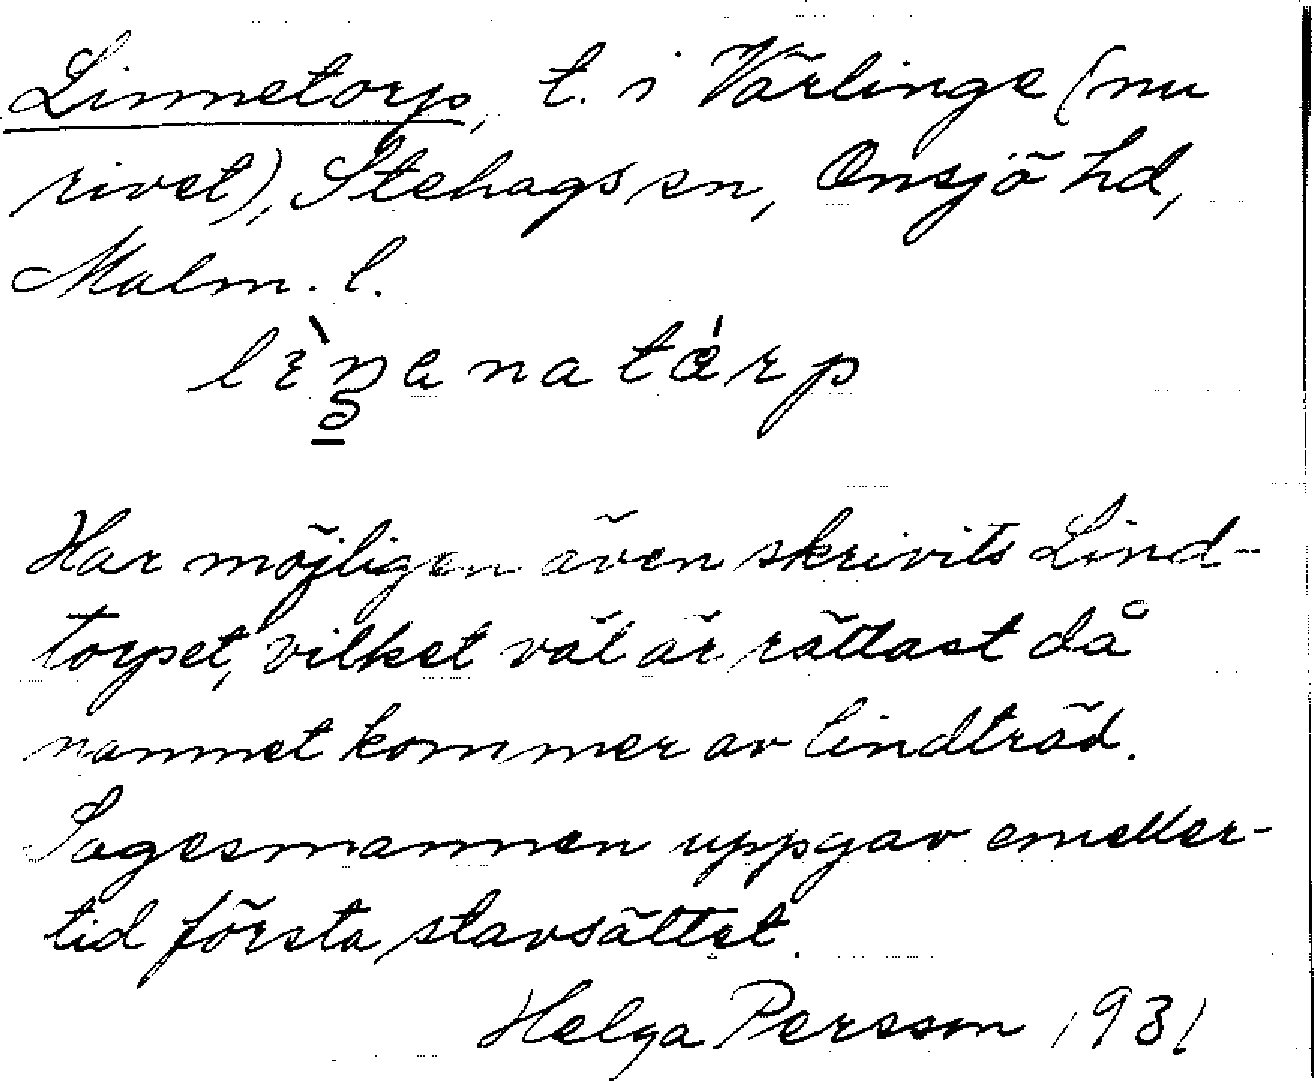 Linnetorp, t. i Värlinge (nu
rivet), Stehags sn, Onsjö hd,
Malm. l.
Har möjligen även skrivits Lind-
torpet, vilket väl är rättast då
namnet kommer av lindträd.
Sagesmannen uppgav emeller-
tid första stavsättet.
Helga Persson 1931